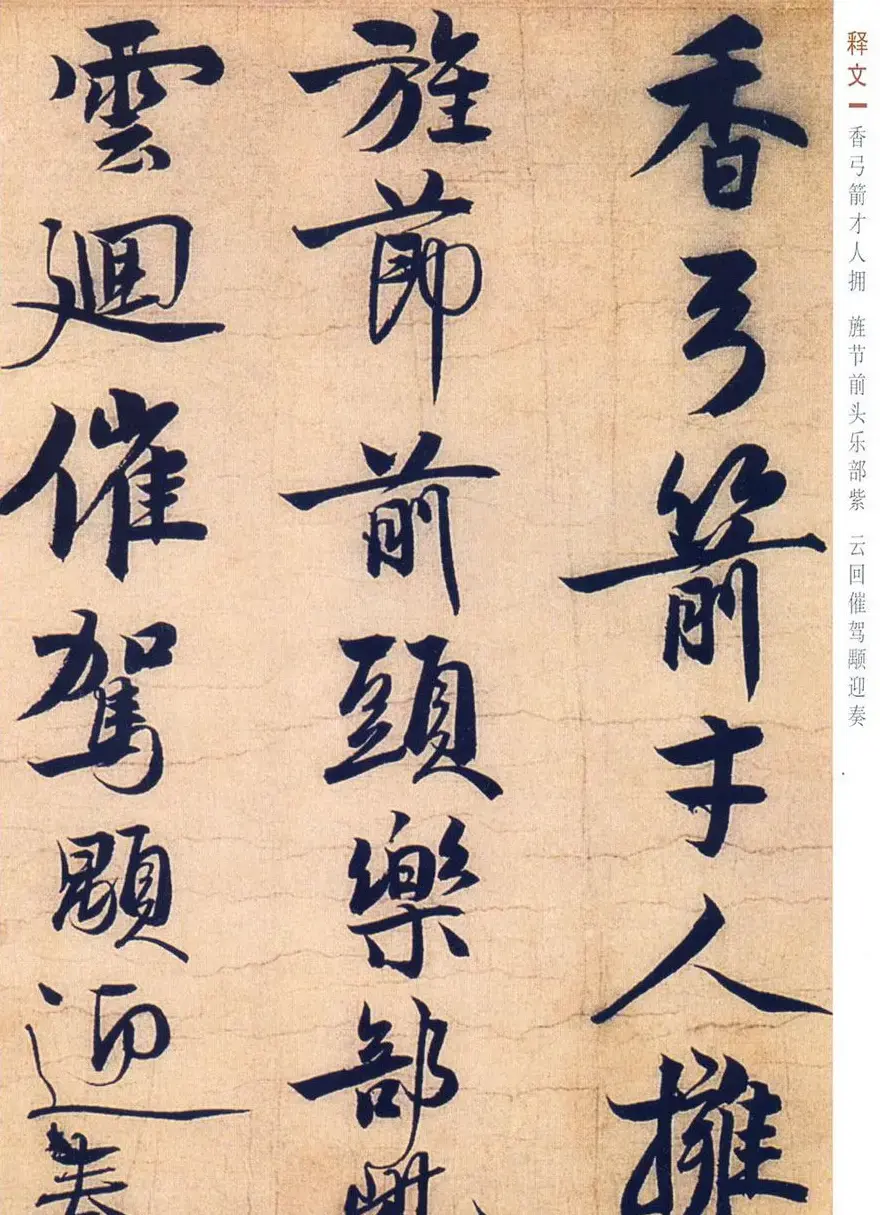 释文 香弓箭才人拥 旌节前头乐部紫 云回催驾颙迎奏
香弓箭才人擁
旌節前頭樂部紫
雲迴催駕顒迎奏